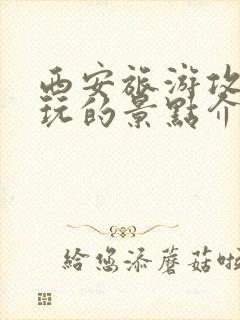 西安旅游攻
玩的景點介
給您添蘑菇啦